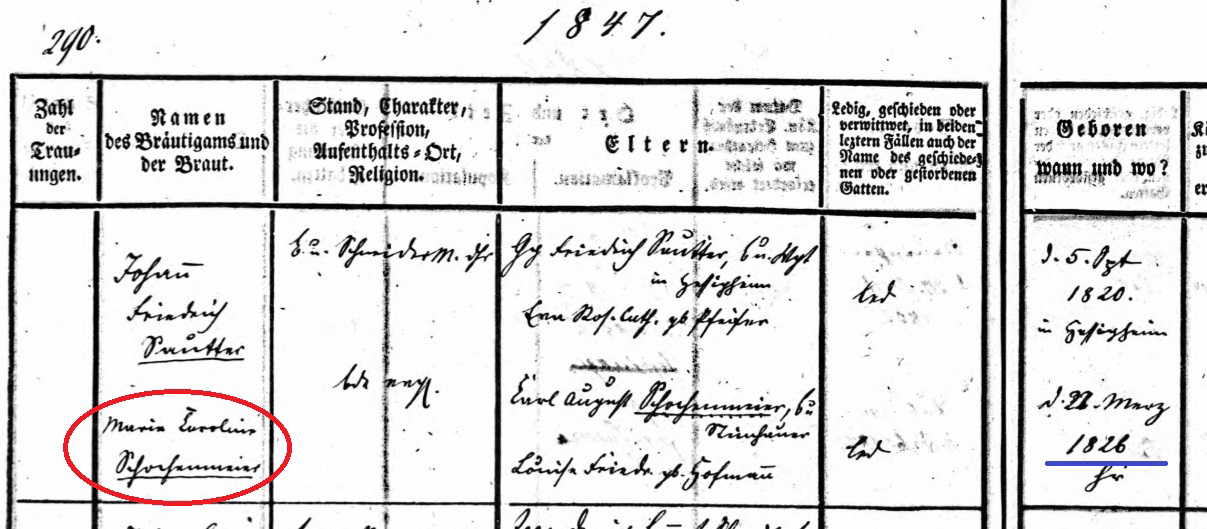 290.
1847.
Zahl
der
Trau-
ungen.
Namen
des Bräutigams und
der Braut.
Stand, Charakter,
Profession,
Aufenthalts-Ort,
Religion.
Eltern.
Ledig, geschieden oder
verwittwet, in beiden
leztern Fällen auch der
Name des geschiede-
nen oder gestorbenen
Gatten.
Geboren
wann und wo?
Johañ
Friedrich
Sautter
B. u. Schneider M. dhr
Friedrich Sautter, B u. Wgt
in Hessigheim
Eva Ros. Cath. gb Pfeifer
led
d. 5. Spt
1820.
in Hessigheim
Marie Caroline
Schochenmeier
bde evgl.
Carl August Schochenmeier, B u
Steinhauer
Louise Friedr. gb. Hofmañ
led
Merz
1826
hr